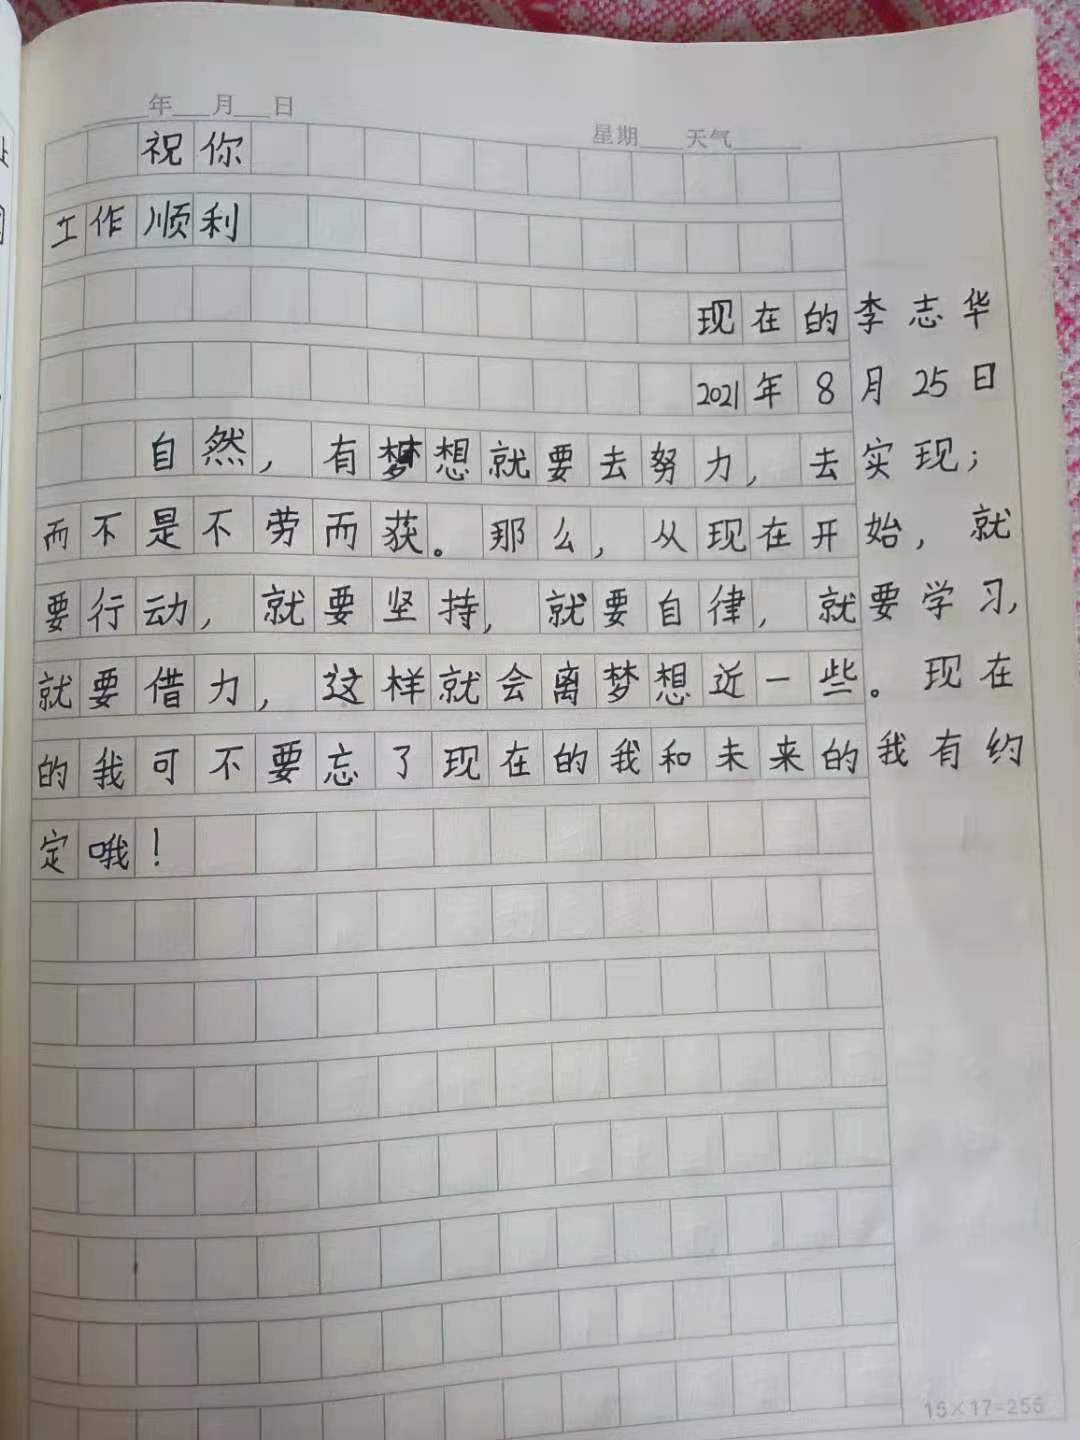 年 月 日
星期 天气
祝你
工作顺利
现在的李志华
2021年8月25日
自然，有梦想就要去努力，去实现；
而不是不劳而获。那么，从现在开始，就
要行动，就要坚持，就要自律，就要学习，
就要借力，这样就会离梦想近一些。现在
的我可不要忘了现在的我和未来的我有约
定哦！
15×17=255